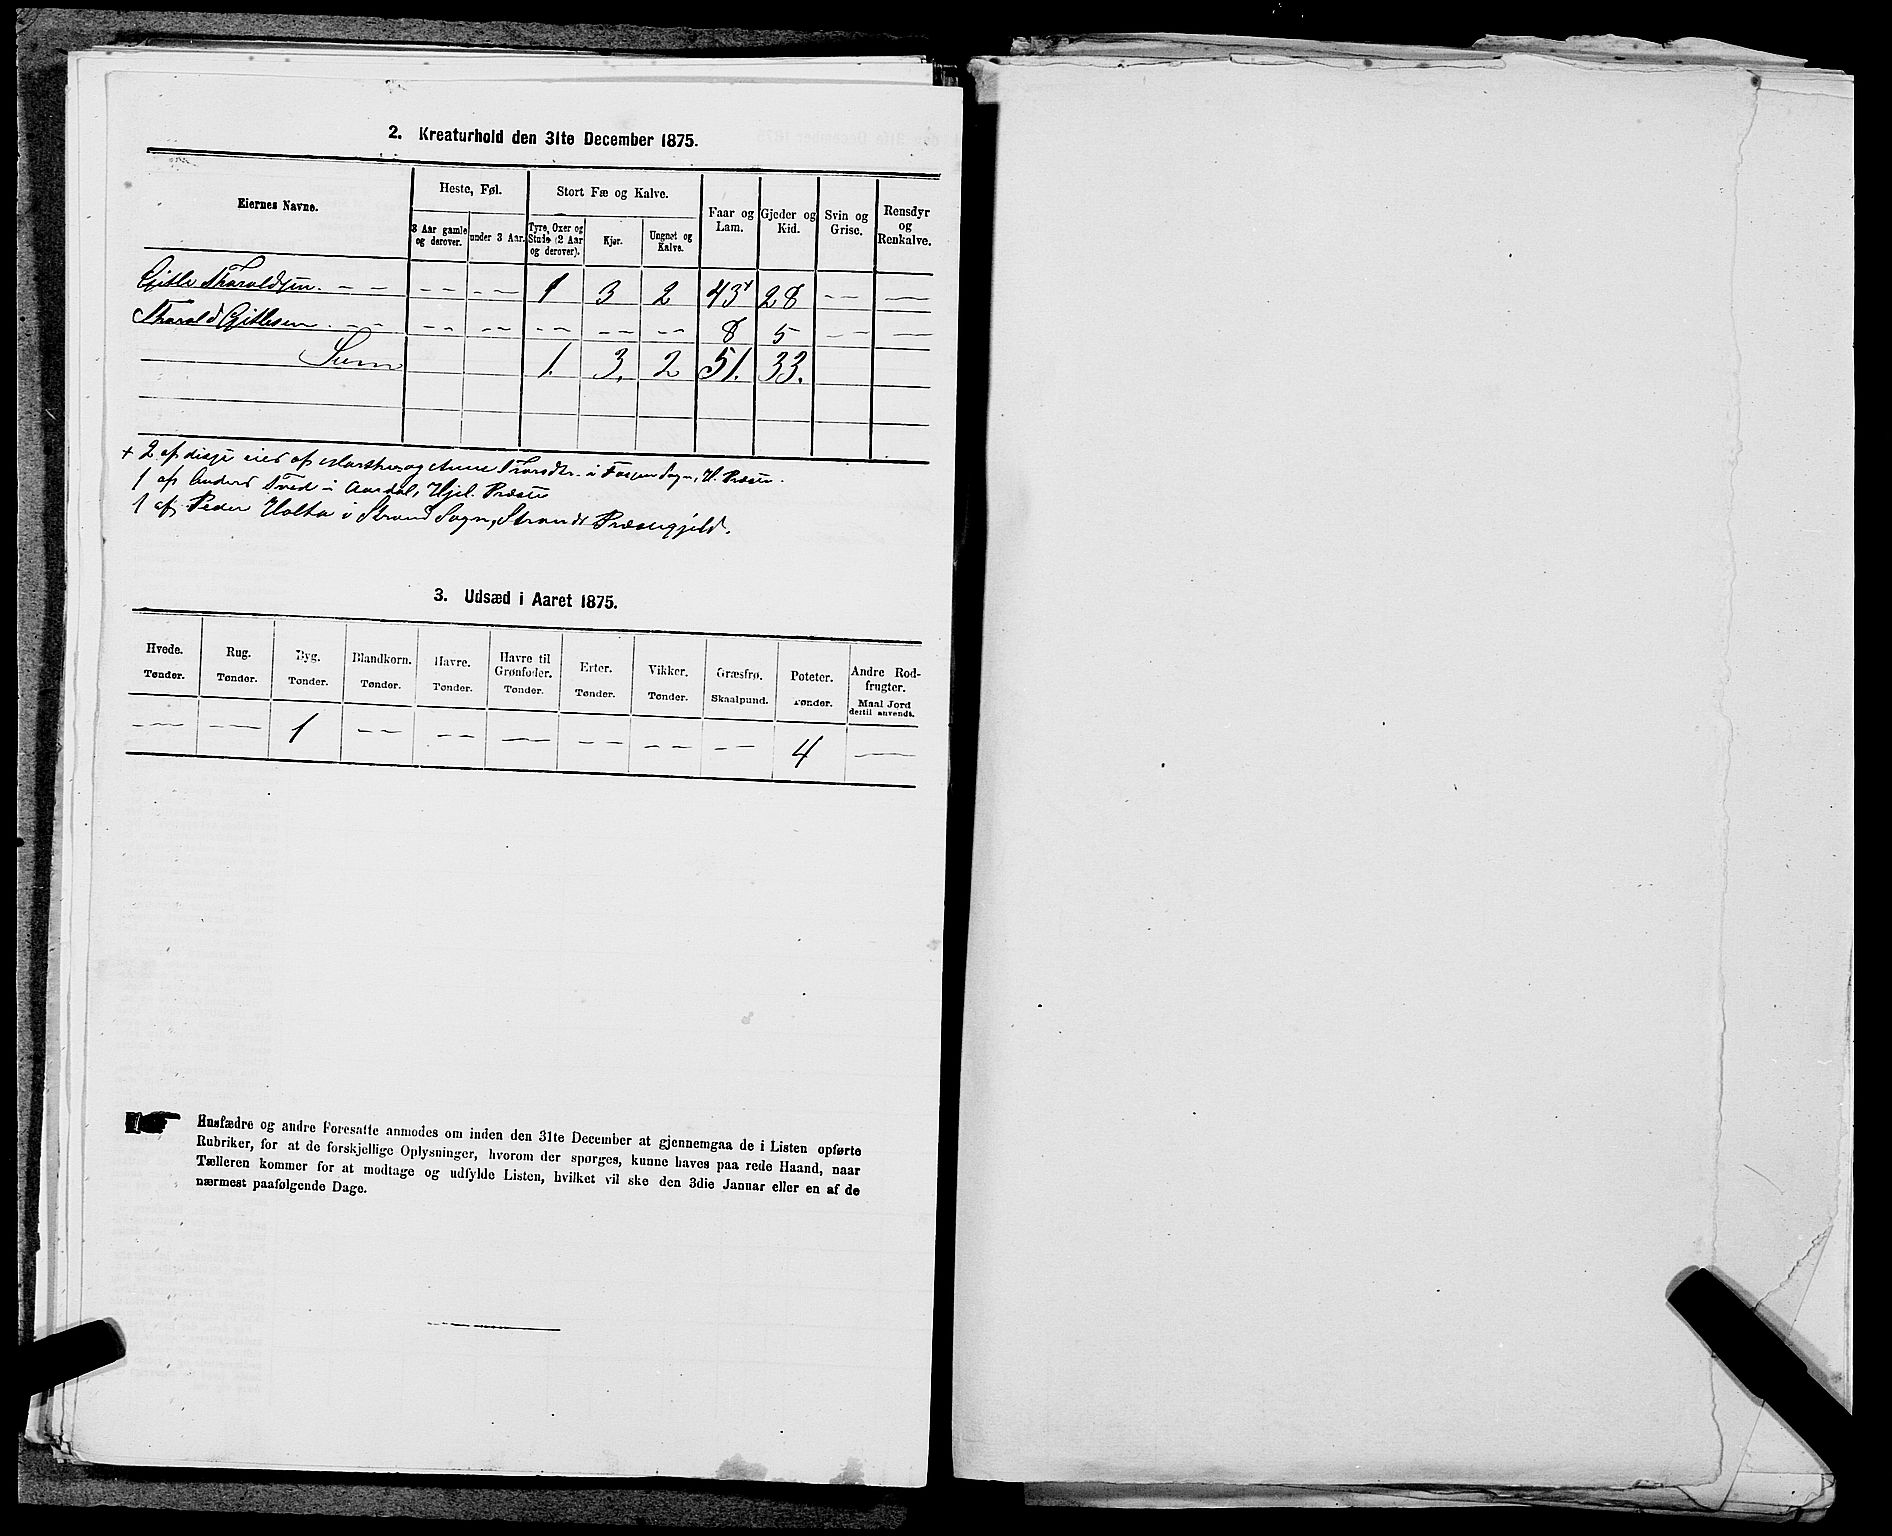 2. Kreaturhold den 31te December 1875.
Eiernes Navne.
Heste, Føl.
Stort Fæ og Kalve.
Faar og Lam.
Gjeder og Kid.
Svin og Grise.
Rensdyr og Renkalve.
3 Aar gamle og derover.
under 3 Aar.
Tyre, Oxer og Stude (2 Aar og derover).
Kjør.
Ungnøt og Kalve.
Gitle Tharaldsen. – – – – – – 1 3 2 43+ 28 – – —
Tharald Gitlesen – – – – – – – – – – – – 8 5 – – —
Sum 1. 3. 2 51. 33.
+ 2 af disse eies af Marthe og Anne i Sogn, H. Præstr.
1 af Anders Tved i Aardal, Hjel. Præstr
1 af Peder Holta i Strand Sogn, Strands Præstegjeld.
3. Udsæd i Aaret 1875.
Hvede. Tønder.
Rug. Tønder.
Byg. Tønder.
Blandkorn. Tønder.
Havre. Tønder.
Havre til Grønfoder. Tønder.
Erter. Tønder.
Vikker. Tønder.
Græsfrø. Skaalpund.
Poteter. Tønder.
Andre Rodfrugter. Maal Jord dertil anvendt.
– – — 1 – – – – — – – – – – – 4 —
Husfædre og andre Foresatte anmodes om inden den 31te December at gjennemgaa de i Listen opførte
Rubriker, for at de forskjellige Oplysninger, hvorom der spørges, kunne haves paa rede Haand, naar
Tælleren kommer for at modtage og udfylde Listen, hvilket vil ske den 3die Januar eller en af de
nærmest paafølgende Dage.